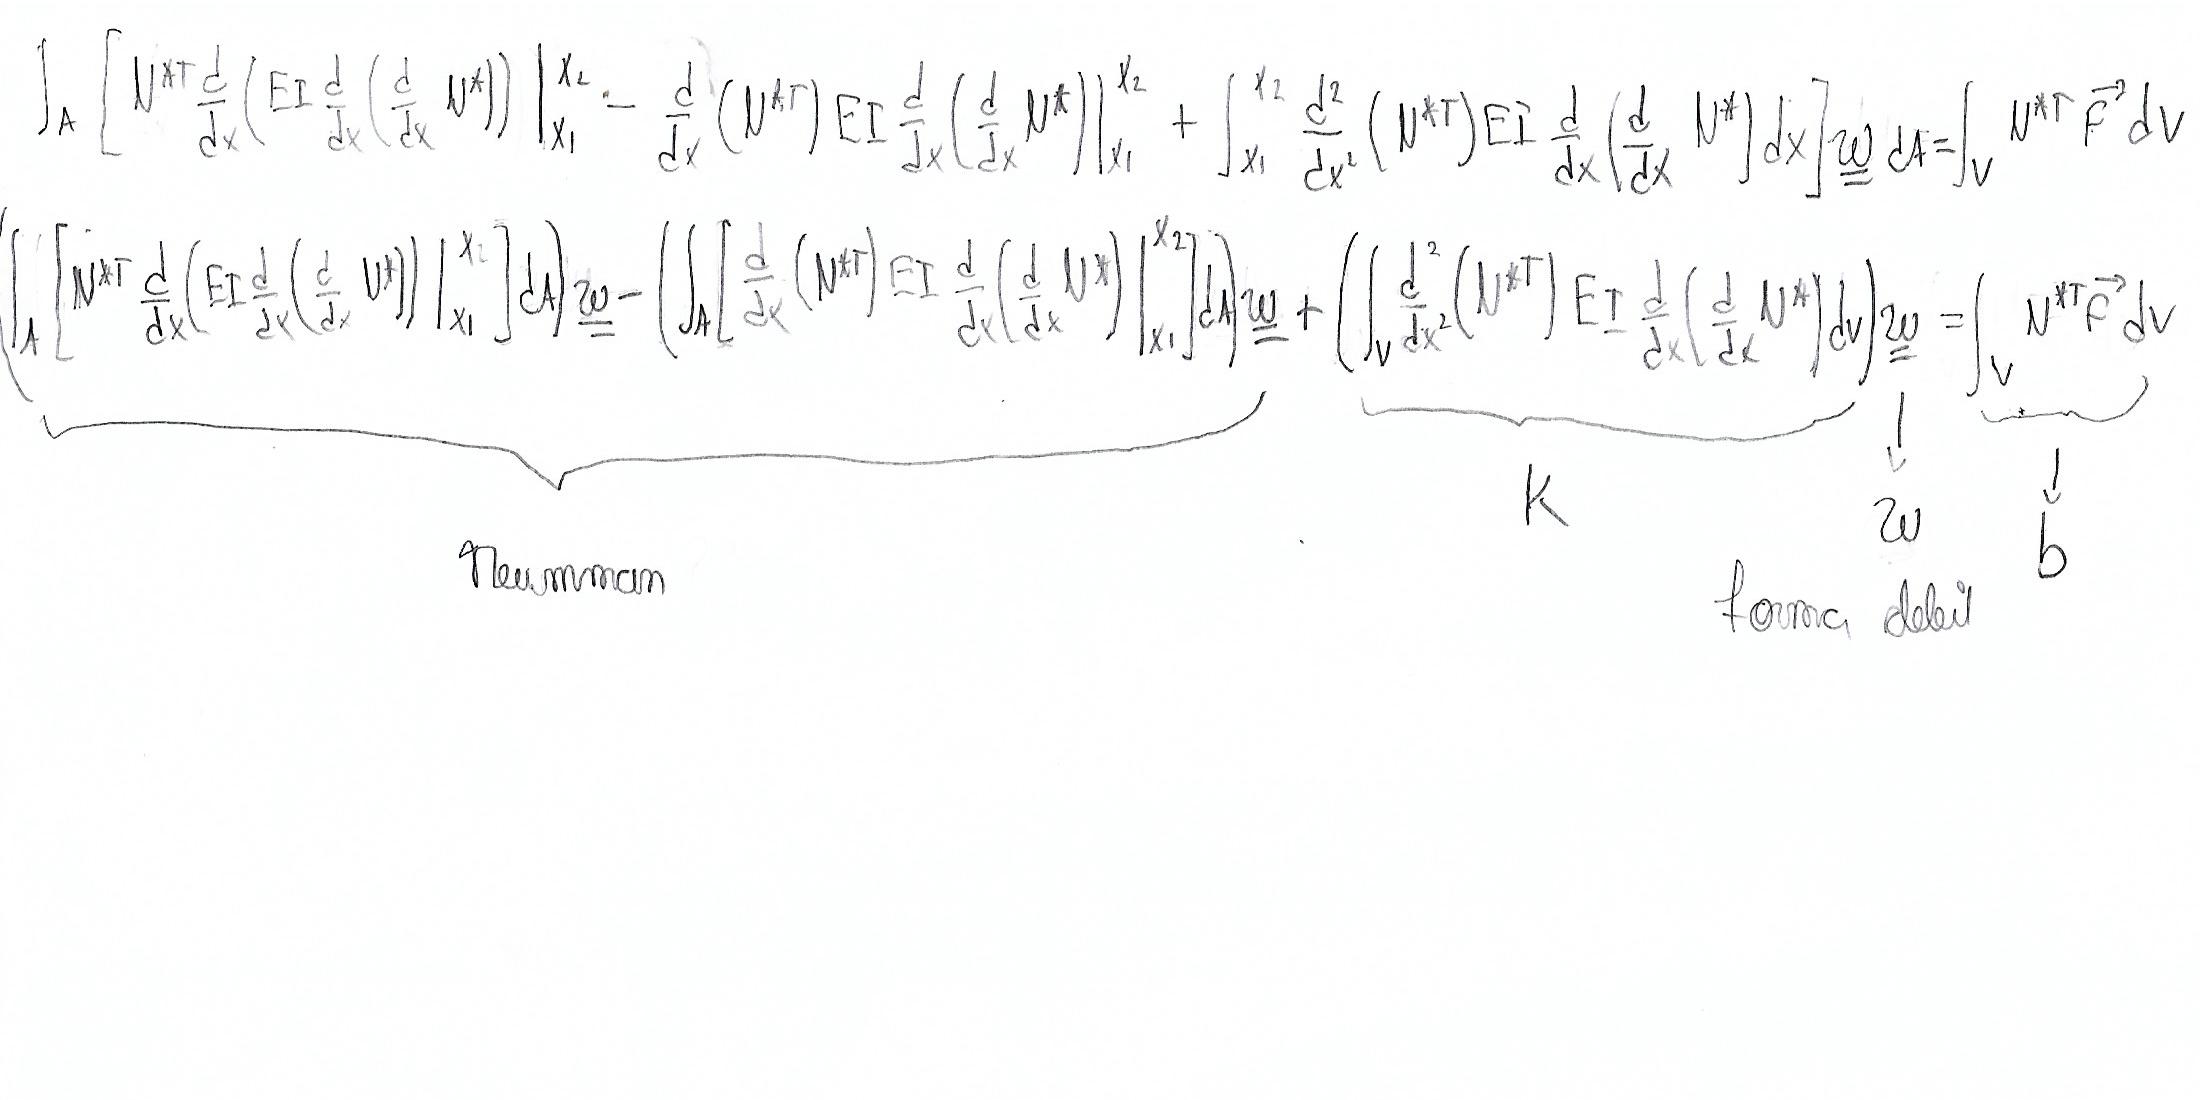 ∫_A [ N*ᵀ d/dx (EI d/dx (d/dx N*)) |_{x1}^{x2} − d/dx (N*ᵀ) EI d/dx (d/dx N*) |_{x1}^{x2} + ∫_{x1}^{x2} d²/dx² (N*ᵀ) EI d/dx (d/dx N*) dx ] w dA = ∫_V N*ᵀ F⃗ dV
(∫_A [ N*ᵀ d/dx (EI d/dx (d/dx N*)) |_{x1}^{x2} ] dA) w − (∫_A [ d/dx (N*ᵀ) EI d/dx (d/dx N*) |_{x1}^{x2} ] dA) w + (∫_V d²/dx² (N*ᵀ) EI d/dx (d/dx N*) dV) w = ∫_V N*ᵀ F⃗ dV
K w b
Neumman
forma debil